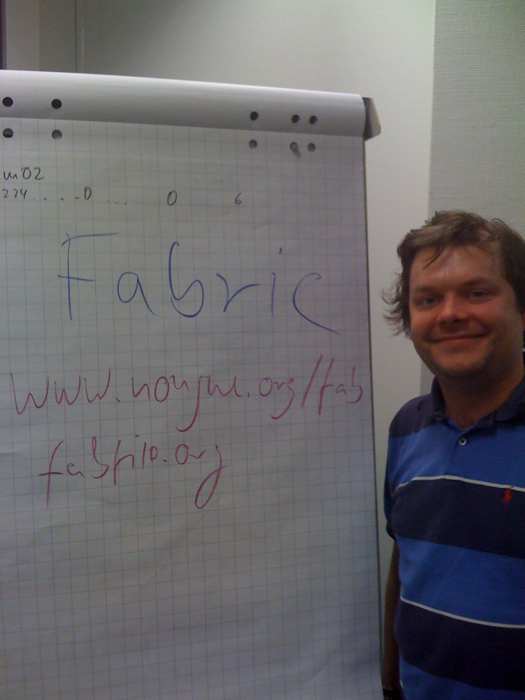 um02
224 . . . . 0 . . . 0 6
Fabric
www.nongnu.org/fab
fabfile.org